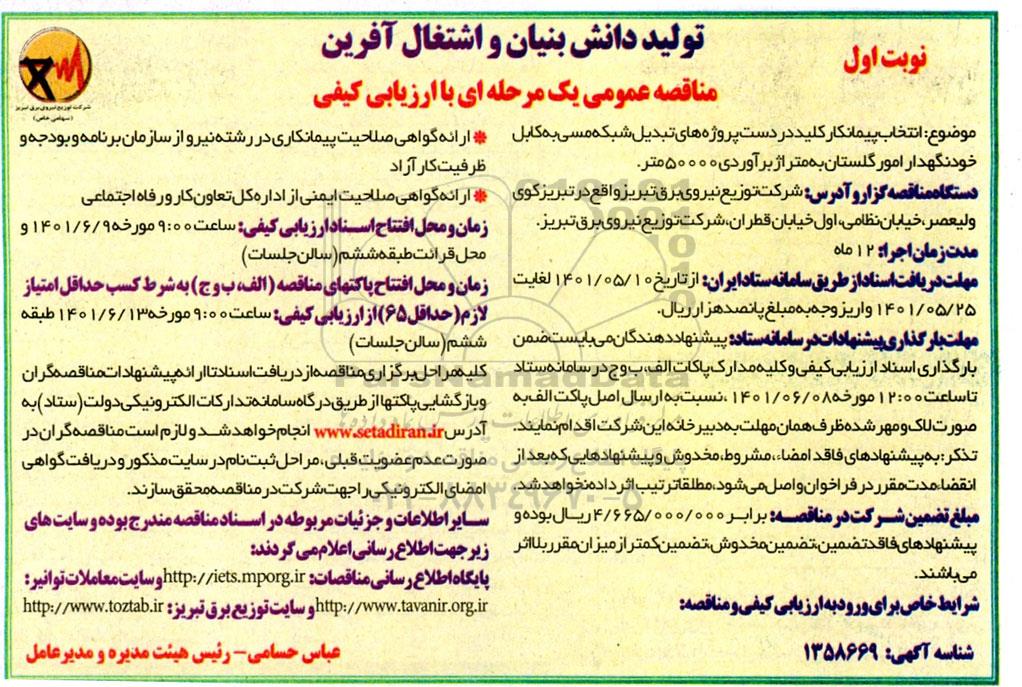 تولید دانش بنیان و اشتغال آفرین
نوبت اول
مناقصه عمومی یک مرحله ای با ارزیابی کیفی
شرکت توزیع نیروی برق تبریز
(سهامی خاص)
موضوع: انتخاب پیمانکار کلید در دست پروژه های تبدیل شبکه مسی به کابل
خودنگهدار امور گلستان به متراژ برآوردی ۵۰۰۰۰ متر.
دستگاه مناقصه گزار و آدرس: شرکت توزیع نیروی برق تبریز واقع در تبریز کوی
ولیعصر، خیابان نظامی، اول خیابان قطران، شرکت توزیع نیروی برق تبریز.
مدت زمان اجرا: ۱۲ ماه
مهلت دریافت اسناد از طریق سامانه ستاد ایران: از تاریخ ۱۴۰۱/۰۵/۱۰ لغایت
۱۴۰۱/۰۵/۲۵ واریز وجه به مبلغ پانصد هزار ریال.
مهلت بارگذاری پیشنهادات در سامانه ستاد: پیشنهاد دهندگان می بایست ضمن
بارگذاری اسناد ارزیابی کیفی و کلیه مدارک پاکات الف، ب و ج در سامانه ستاد
تا ساعت ۱۲:۰۰ مورخه ۱۴۰۱/۰۶/۰۸، نسبت به ارسال اصل پاکت الف به
صورت لاک و مهر شده ظرف همان مهلت به دبیرخانه این شرکت اقدام نمایند.
تذکر: به پیشنهادهای فاقد امضاء، مشروط، مخدوش و پیشنهادهایی که بعد از
انقضاء مدت مقرر در فراخوان واصل می شود، مطلقا ترتیب اثر داده نخواهد شد.
مبلغ تضمین شرکت در مناقصه: برابر ۴/۶۶۵/۰۰۰/۰۰۰ ریال بوده و
پیشنهادهای فاقد تضمین، تضمین مخدوش، تضمین کمتر از میزان مقرر بلا اثر
می باشند.
شرایط خاص برای ورود به ارزیابی کیفی و مناقصه:
* ارائه گواهی صلاحیت پیمانکاری در رشته نیرو از سازمان برنامه و بودجه و
ظرفیت کار آزاد
* ارائه گواهی صلاحیت ایمنی از اداره کل تعاون کار و رفاه اجتماعی
زمان و محل افتتاح اسناد ارزیابی کیفی: ساعت ۹:۰۰ مورخه ۱۴۰۱/۶/۹ و
محل قرائت طبقه ششم (سالن جلسات)
زمان و محل افتتاح پاکتهای مناقصه (الف، ب و ج) به شرط کسب حداقل امتیاز
لازم (حداقل ۶۵) از ارزیابی کیفی: ساعت ۹:۰۰ مورخه ۱۴۰۱/۶/۱۳ طبقه
ششم (سالن جلسات)
کلیه مراحل برگزاری مناقصه از دریافت اسناد تا ارائه پیشنهادات مناقصه گران
و بازگشایی پاکتها از طریق درگاه سامانه تدارکات الکترونیکی دولت (ستاد) به
آدرس www.setadiran.ir انجام خواهد شد و لازم است مناقصه گران در
صورت عدم عضویت قبلی، مراحل ثبت نام در سایت مذکور و دریافت گواهی
امضای الکترونیکی را جهت شرکت در مناقصه محقق سازند.
سایر اطلاعات و جزئیات مربوطه در اسناد مناقصه مندرج بوده و سایت های
زیر جهت اطلاع رسانی اعلام می گردند:
پایگاه اطلاع رسانی مناقصات: http://iets.mporg.ir و سایت معاملات توانیر:
http://www.tavanir.org.ir و سایت توزیع برق تبریز: http://www.toztab.ir
شناسه آگهی: ۱۳۵۸۶۶۹
عباس حسامی - رئیس هیئت مدیره و مدیرعامل
ParsNamadData
۰۲۱-۸۸۳۴۹۶۷۰-۵